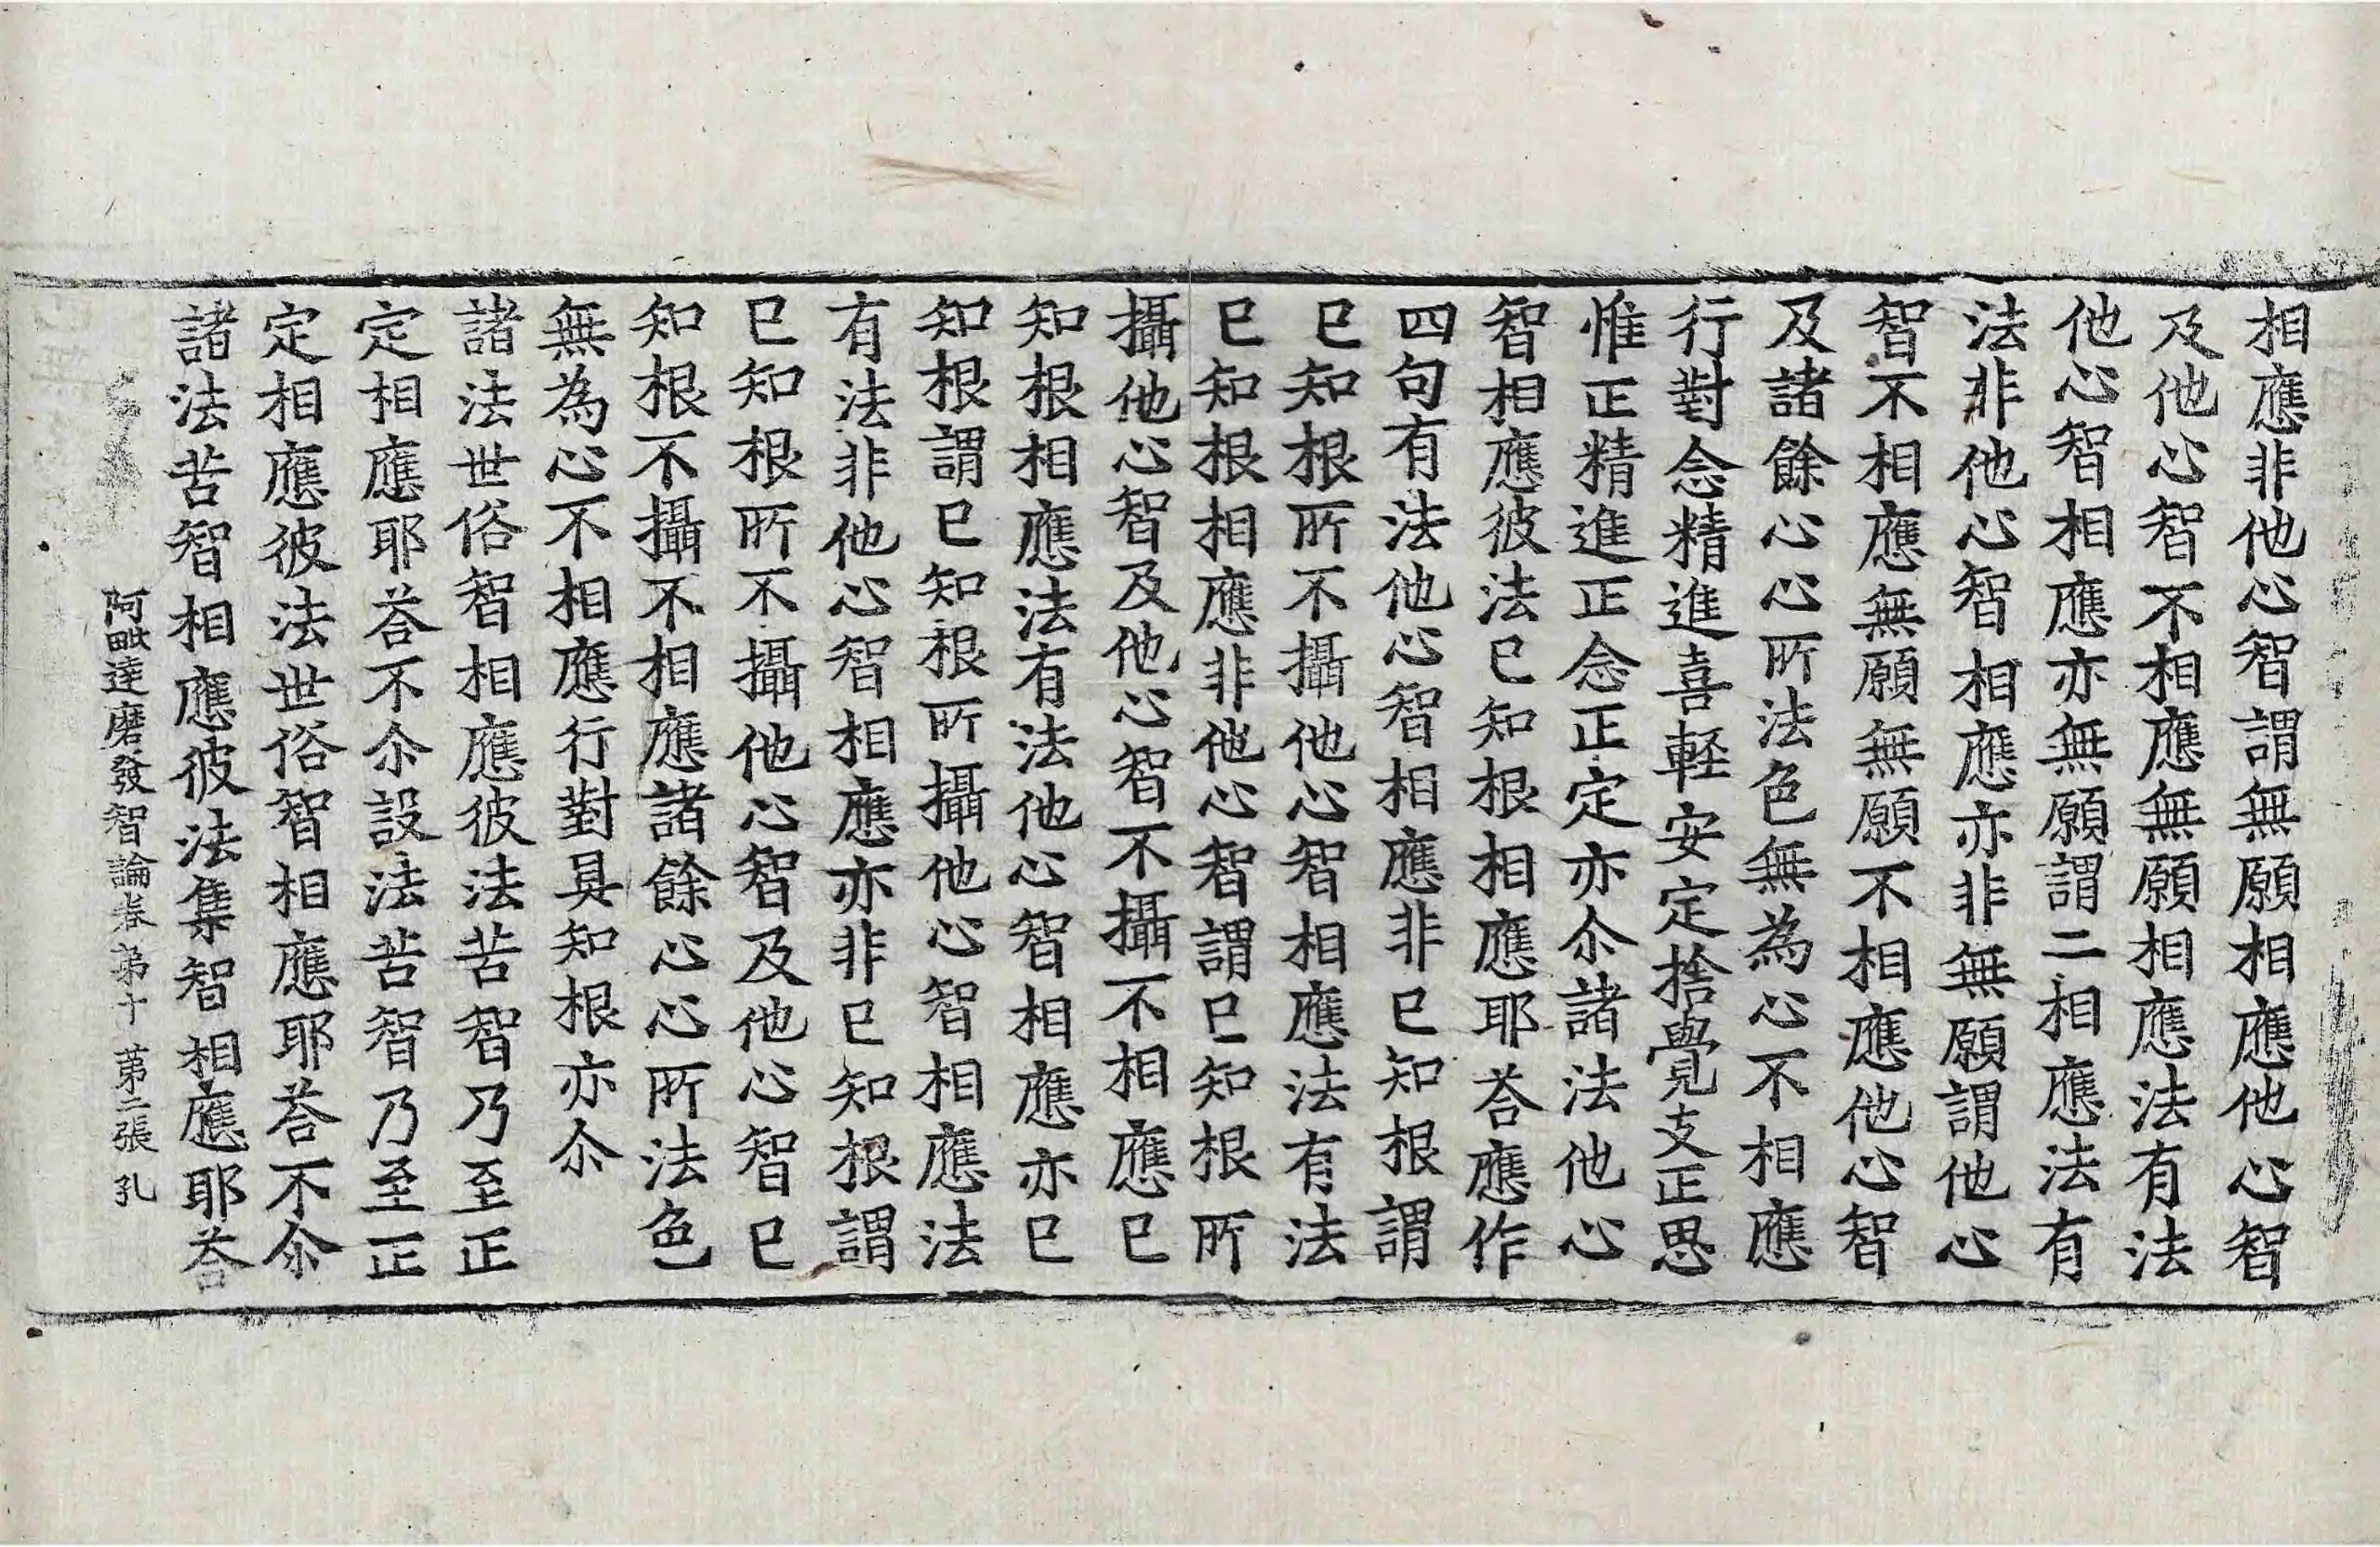 相應非他心智謂無願相應他心智
及他心智不相應無願相應法有法
他心智相應亦無願謂二相應法有
法非他心智相應亦非無願謂他心
智不相應無願無願不相應他心智
及諸餘心心所法色無為心不相應
行對念精進喜輕安定捨覺支正思
惟正精進正念正定亦尒諸法他心
智相應彼法已知根相應耶荅應作
四句有法他心智相應非已知根謂
已知根所不攝他心智相應法有法
已知根相應非他心智謂已知根所
攝他心智及他心智不攝不相應已
知根相應法有法他心智相應亦已
知根謂已知根所攝他心智相應法
有法非他心智相應亦非已知根謂
已知根所不攝他心智及他心智已
知根不攝不相應諸餘心心所法色
無為心不相應行對具知根亦尒
諸法世俗智相應彼法苦智乃至正
定相應耶荅不尒設法苦智乃至正
定相應彼法世俗智相應耶荅不尒
諸法苦智相應彼法集智相應耶荅
阿毗達磨發智論卷第十 苐二張 孔